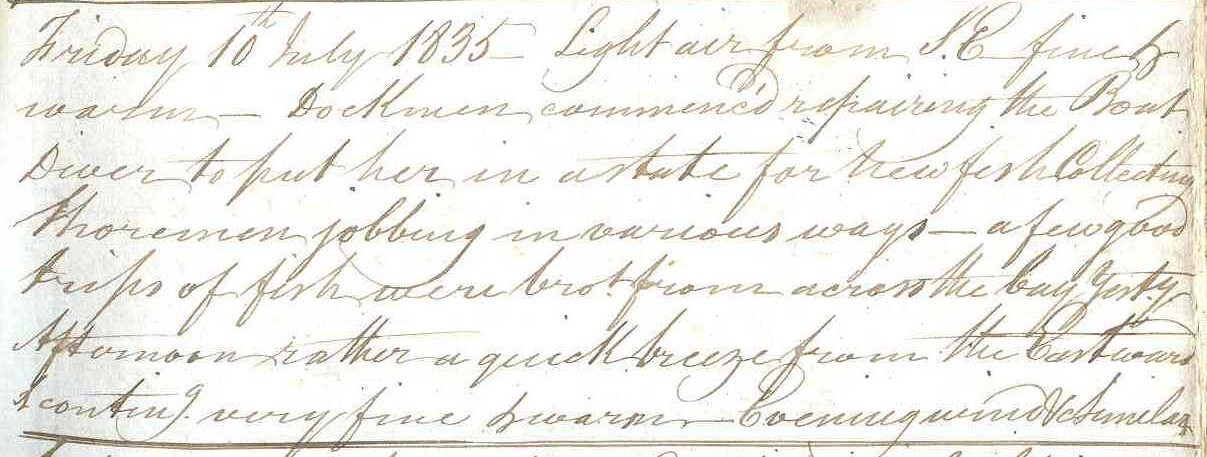 Friday 10th July 1835 – Light air from S.E fine &
warm – Dockmen commenc'd repairing the Boat
Diver to put her in a state for New fish Collecting
Shoremen jobbing in various ways – a few good
trips of fish were brot. from across the bay Yesty.
Afternoon rather a quick breeze from the Eastward
& conting. very fine & warm – Evening wind &c Similar